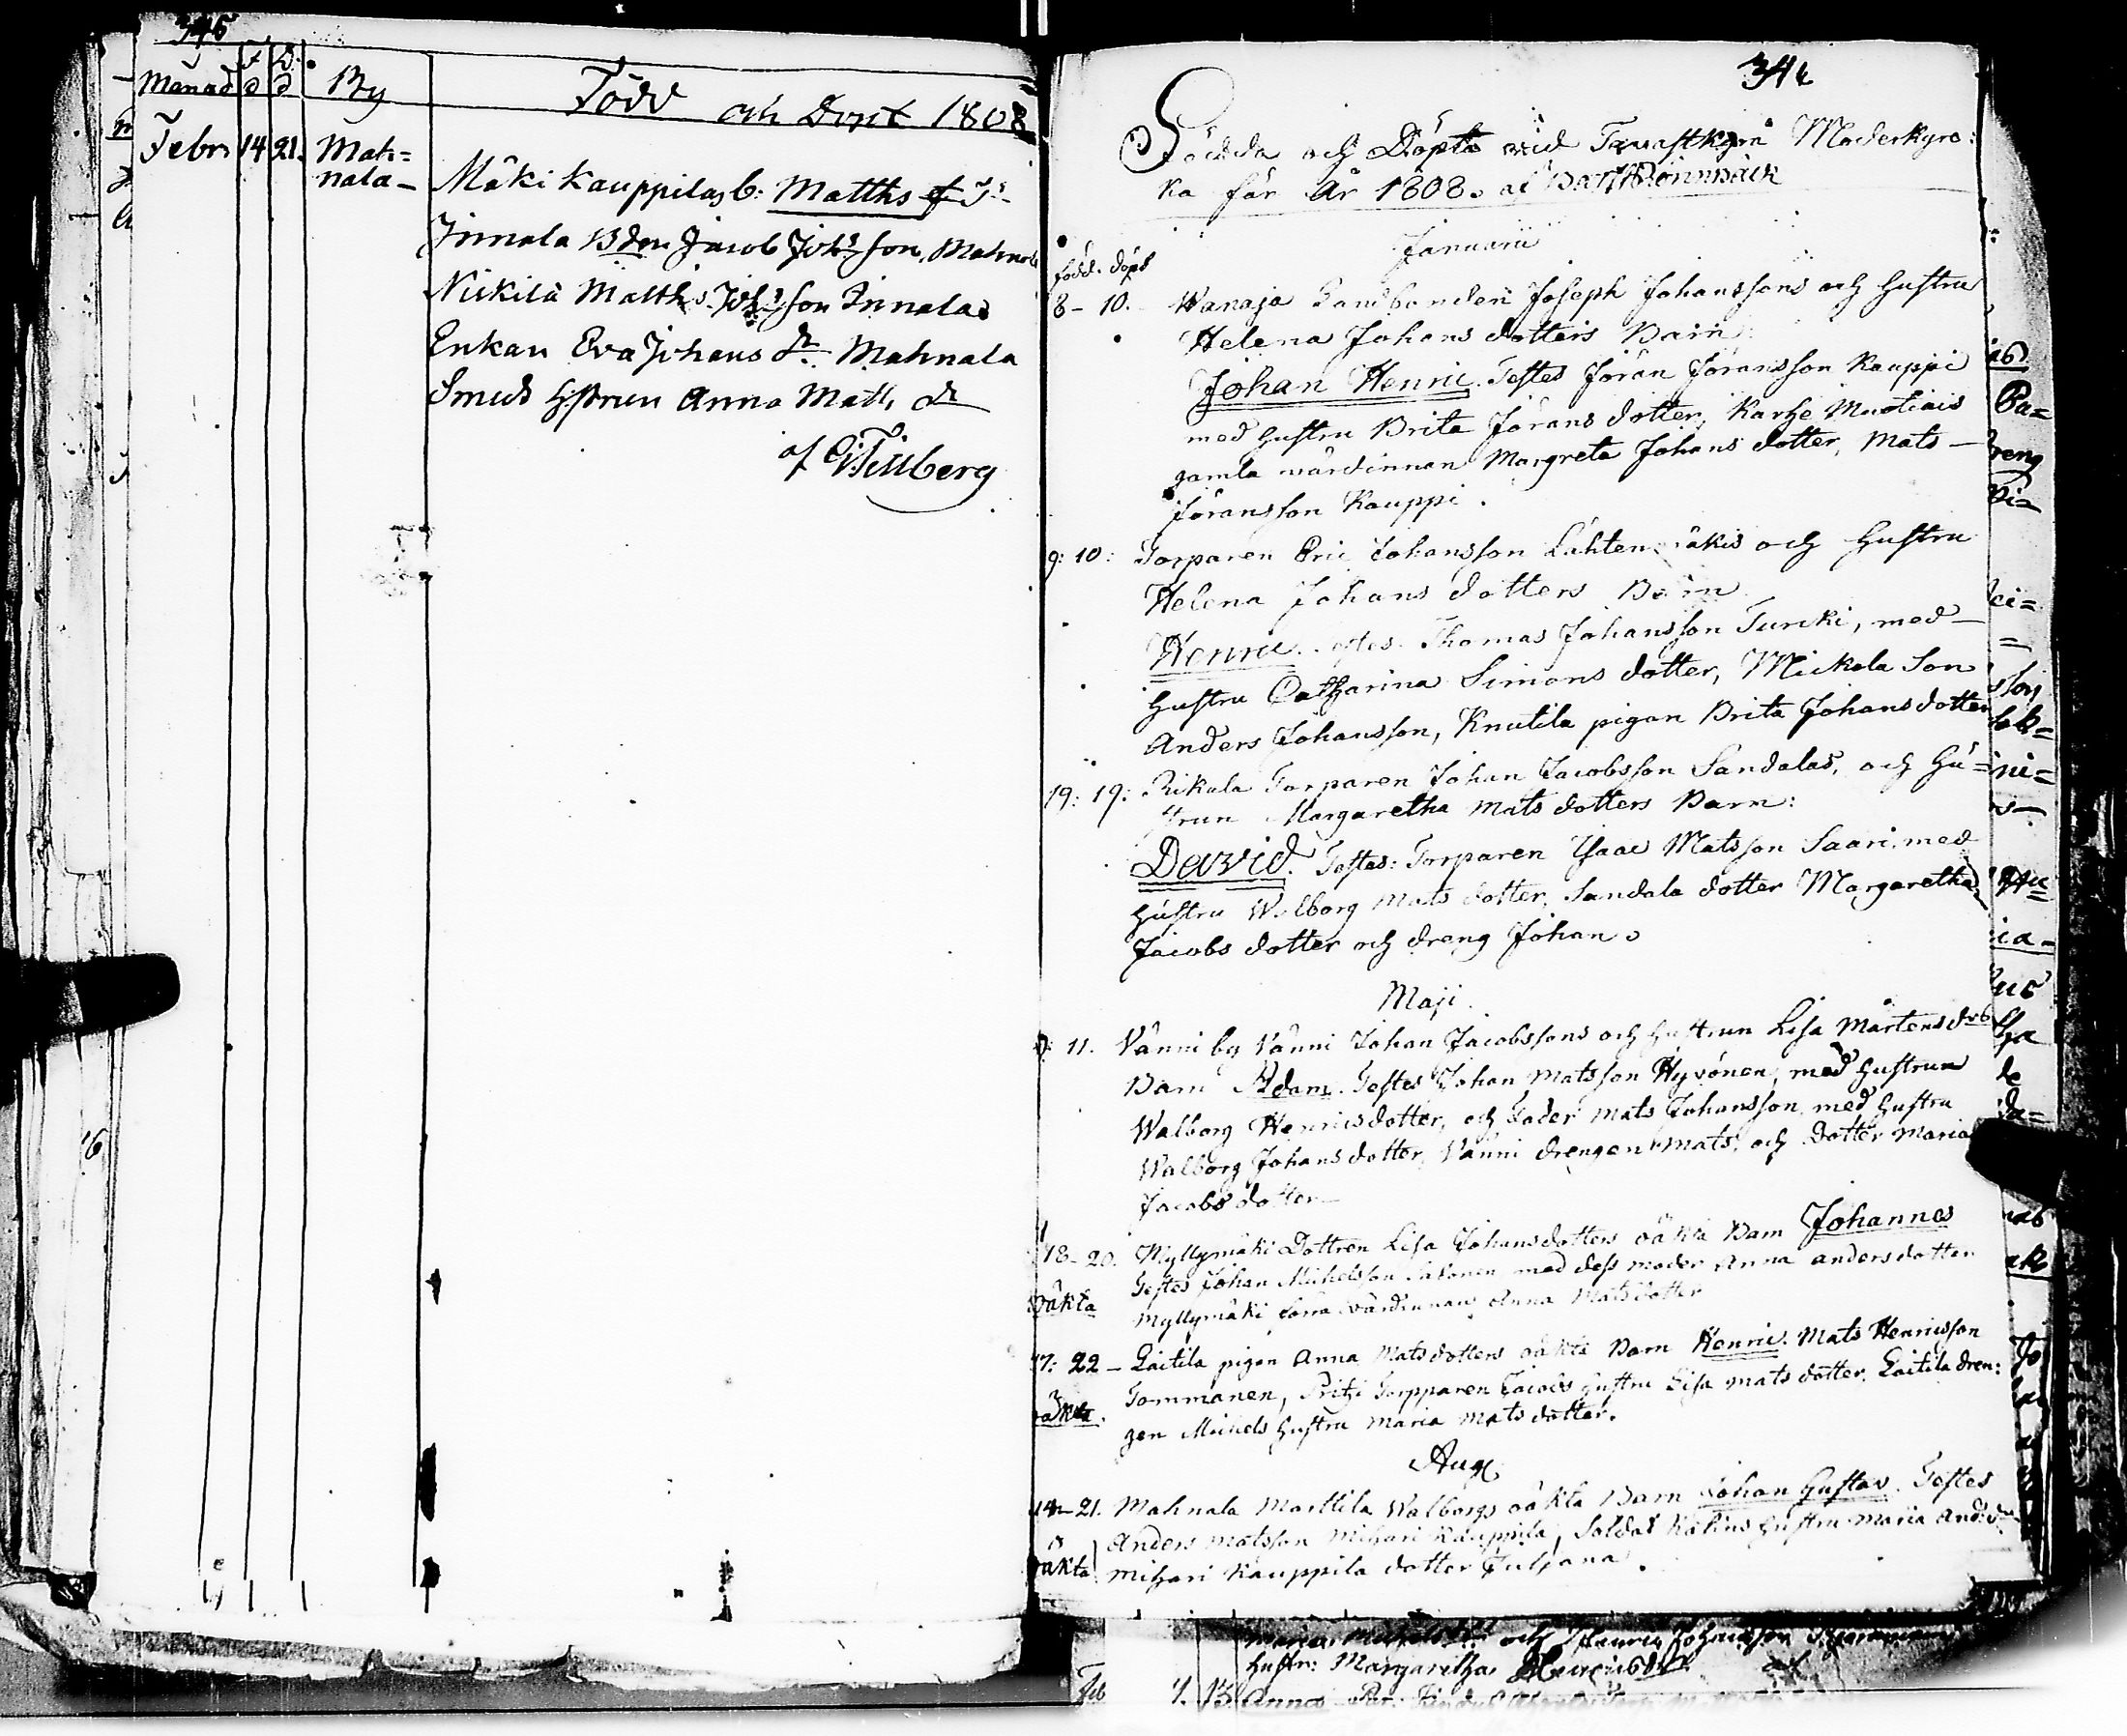 Månad
F d
D: d
By
Född och Döpt 1808
Febr 14 21. Mah=
nala –
Mäki Kauppilas b: Matths
Innala Bden Jacob Johsson, Mahnala
Nickilä Matths Johsson Innala
Enkan Eva Johans dr. Mahnala
Smeds Hustrun Anna Matts dr
af G Tillberg
346
Födda och Döpta wid Tavastkyrö Moderkyro:
ka för År 1808. af
Januarii
född. döpt
8 – 10. Wanaja Landbonden Joseph Johanssons och hustru
Helena Johans dotters Barn
Johan Henric. Testes Jöran Jöransson Kauppi
med hustru Brita Jörans dotter, Karhe
gamla wärdinnan Margreta Johans dotter, Mats –
Jöransson Kauppi.
9: 10: Torparen Eric Johansson Lähtenmäkis och hustru
Helena Johans dotters Barn
Henric. Testes. Thomas Johansson Turcki, med –
hustru Catharina Simons dotter, Mickola Son
Anders Johansson, Knutila pigan Brita Johansdotter
19: 19: Rikala Torparen Johan Jacobsson Sandalas, och hu=
strun Margaretha Mats dotters Barn:
David. Testes: Torparen Isaac Matsson Saari med
hustru Walborg Mats dotter, Sandala dotter Margaretha
Jacobs dotter och dreng Johan.
Maji.
11. Vänni by Vänni Johan Jacobssons och hustrun Lisa Mårtensdrs
Barn Adam. Testes Johan Matsson Hyvönen, med hustrun
Walborg Henricsdotter, och Mats Johansson med hustru
Walborg Johansdotter, Vänni drengen Mats, och Dotter Maria
Jacobs dotter –
18 – 20. Myllymäki Dottren Lisa Johansdotters oäkta Barn Johannes
Testes Johan Michelsson med dess moder Anna Andersdotter
oäkta Myllymäki wärdinnan Anna Matsdotter
17: 22 – Laitila pigan Anna Matsdotters oäkta Barn Henric. Mats Henricsson
oäkta. Tommanen, Torpparen Jacobs hustru Lisa Matsdotter, Laitila dren:
gen Michels hustru Maria Matsdotter.
Aug
14 – 21. Mahnala Marttila Walborgs oäkta Barn Johan Gustav. Testes
Anders Matsson Mihari Kauppila, Soldat hustru Maria And: dr
oäkta Mihari Kauppila dotter Juliana.
hustr: Margaretha Henricsdr
Feb 7. 13 Anna